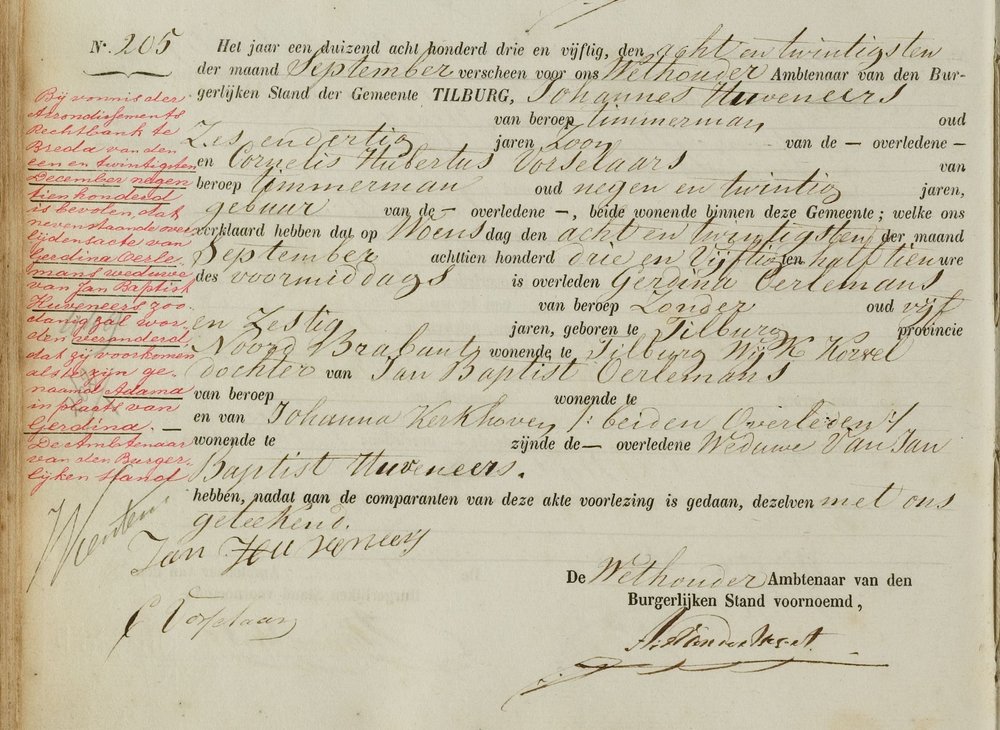 Nº. 205
Het jaar een duizend acht honderd drie en vijftig, den acht en twintigsten
der maand September verscheen voor ons Wethouder Ambtenaar van den Bur-
gerlijken Stand der Gemeente TILBURG, Johannes Huveneers
van beroep timmerman oud
Zes en dertig jaren Zoon van de — overledene —
en Cornelis Hubertus Vorselaars van
beroep timmerman oud negen en twintig jaren,
gebuur van de — overledene —, beide wonende binnen deze Gemeente; welke ons
verklaard hebben dat op Woensdag den acht en twintigsten der maand
September achttien honderd drie en Vijftig ten half tien ure
des voormiddags is overleden Gerdina Oerlemans
van beroep Zonder oud vijf
en Zestig jaren, geboren te Tilburg provincie
Noord Brabant wonende te Tilburg Wijk Korvel
dochter van Jan Baptist Oerlemans
van beroep wonende te
en van Johanna Kerkhoven /: beiden Overleden :/
wonende te zijnde de — overledene Weduwe Van Jan
Baptist Huveneers.
hebben, nadat aan de comparanten van deze akte voorlezing is gedaan, dezelven met ons
geteekend.
Jan Huveneers
C Vorselaars
De Wethouder Ambtenaar van den
Burgerlijken Stand voornoemd,
Bij vonnis der
Arrondissements
Rechtbank te
Breda van den
een en twintigsten
December negen
tienhonderd
is bevolen, dat
nevenstaande over
lijdensacte van
Gerdina Oerle-
mans weduwe
van Jan Baptist
Huveneers zoo-
danig zal wor-
den veranderd
dat zij voorkomen
als te zijn ge-
naamd Adama
in plaats van
Gerdina. —
De Ambtenaar
van den Burger-
lijken Stand